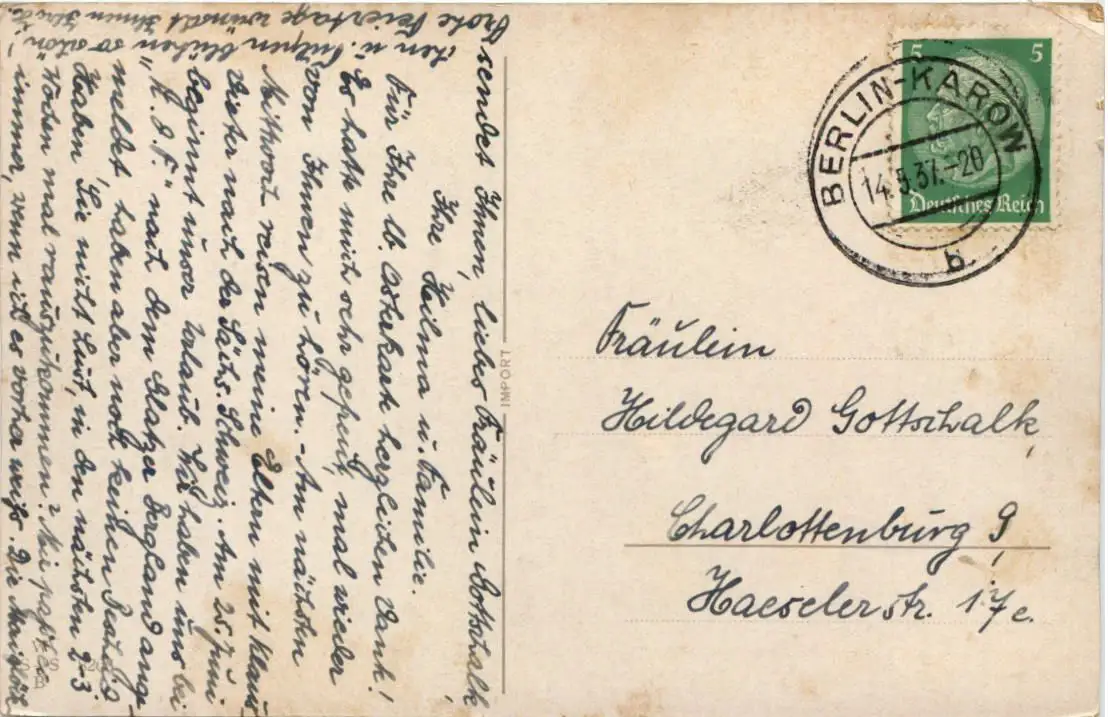 sendet Ihnen, liebes Fräulein Gottschalk
Ihre Heilma u. Familie.
Für Ihre lb. Osterkarte herzlichen Dank!
Es hatte mich sehr gefreut, mal wieder
von Ihnen zu hören. - Am nächsten
Mittwoch reisen meine Eltern mit Klaus
Dieter nach der Sächs. Schweiz. Am 25. Juni
beginnt unser Urlaub. Wir haben uns bei
"K.d.F." nach dem Glatzer Bergland ange-
meldet, haben aber noch keinen Bescheid
Haben Sie nicht Lust, in den nächsten 2-3
Wochen mal rauszukommen? Mir paßt es
immer, wenn ich es vorher weiß. Die Maiglöck-
chen u. Tulpen blühen so schön!
Frohe Feiertage wünscht Ihnen
IMPORT
5 5
Deutsches Reich
BERLIN-KAROW
14.5.37.-20
b
Fräulein
Hildegard Gottschalk,
Charlottenburg 9,
Haeselerstr. 17c.